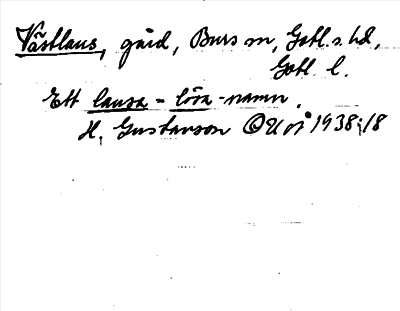 Västlaus, gård, Burs sn, Gotl. s. hd,
Gotl. l.
Ett lausa - lösa - namn.
H. Gustavson OUÅ 1938:18